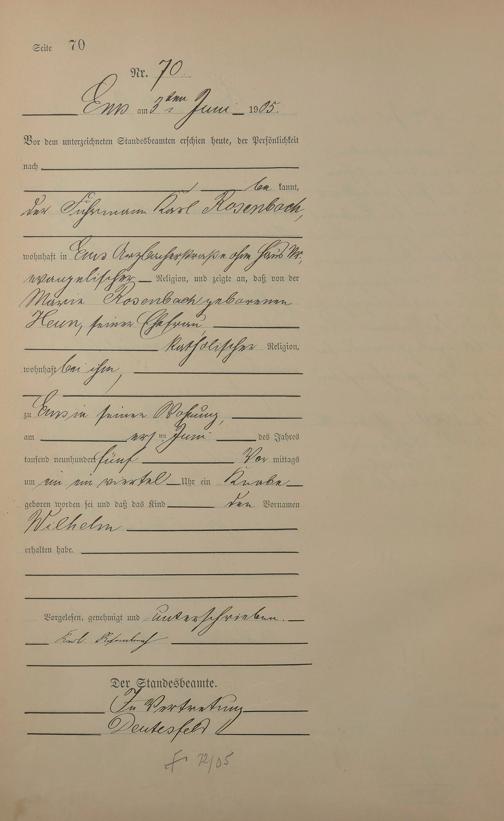 Seite 70
Nr. 70
Ems am 3ten Juni 1905.
Vor dem unterzeichneten Standesbeamten erschien heute, der Persönlichkeit
nach
be kannt,
der Fuhrmann Karl Rosenbach,
wohnhaft in Ems Arzbacherstraße ohne Haus Nr.
evangelischer Religion, und zeigte an, daß von der
Maria Rosenbach geborenen
Heun, seiner Ehefrau,
katholischer Religion,
wohnhaft bei ihm,
zu Ems in seiner Wohnung,
am ersten Juni des Jahres
tausend neunhundert fünf Vor mittags
um ein ein viertel Uhr ein Knabe
geboren worden sei und daß das Kind den Vornamen
Wilhelm
erhalten habe.
Vorgelesen, genehmigt und unterschrieben.
Karl Rosenbach
Der Standesbeamte.
In Vertretung
72/05